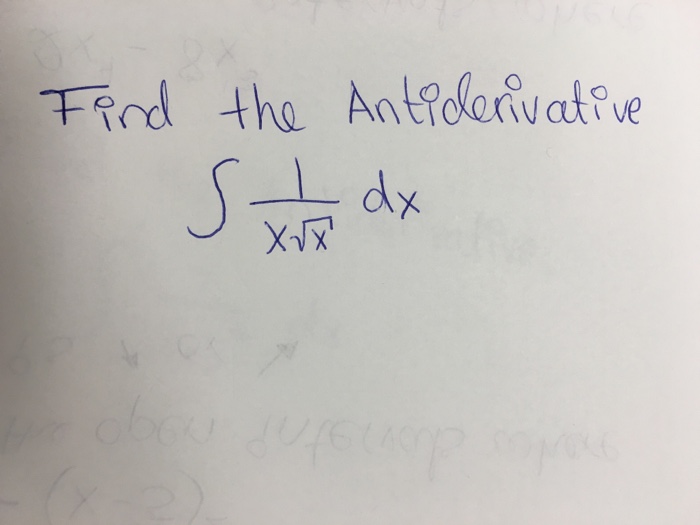 Find the Antiderivative
∫ 1/(x√x) dx